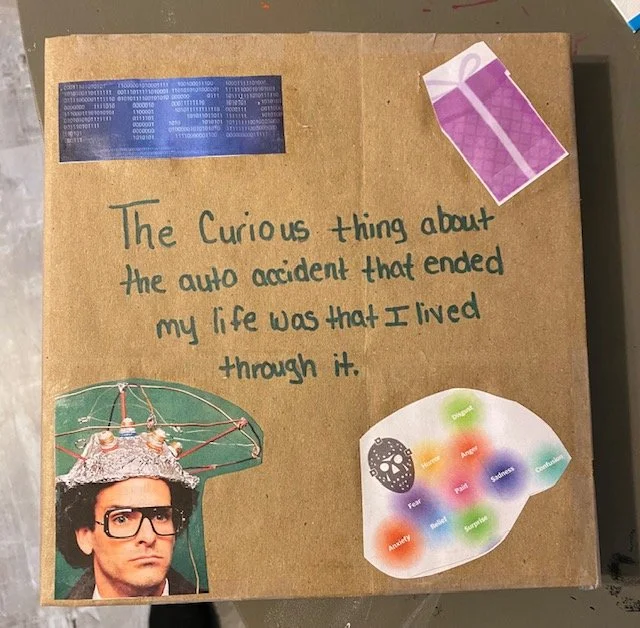 The Curious thing about
the auto accident that ended
my life was that I lived
through it.
Disgust
Horror
Anger
Sadness
Confusion
Pain
Fear
Relief
Surprise
Anxiety